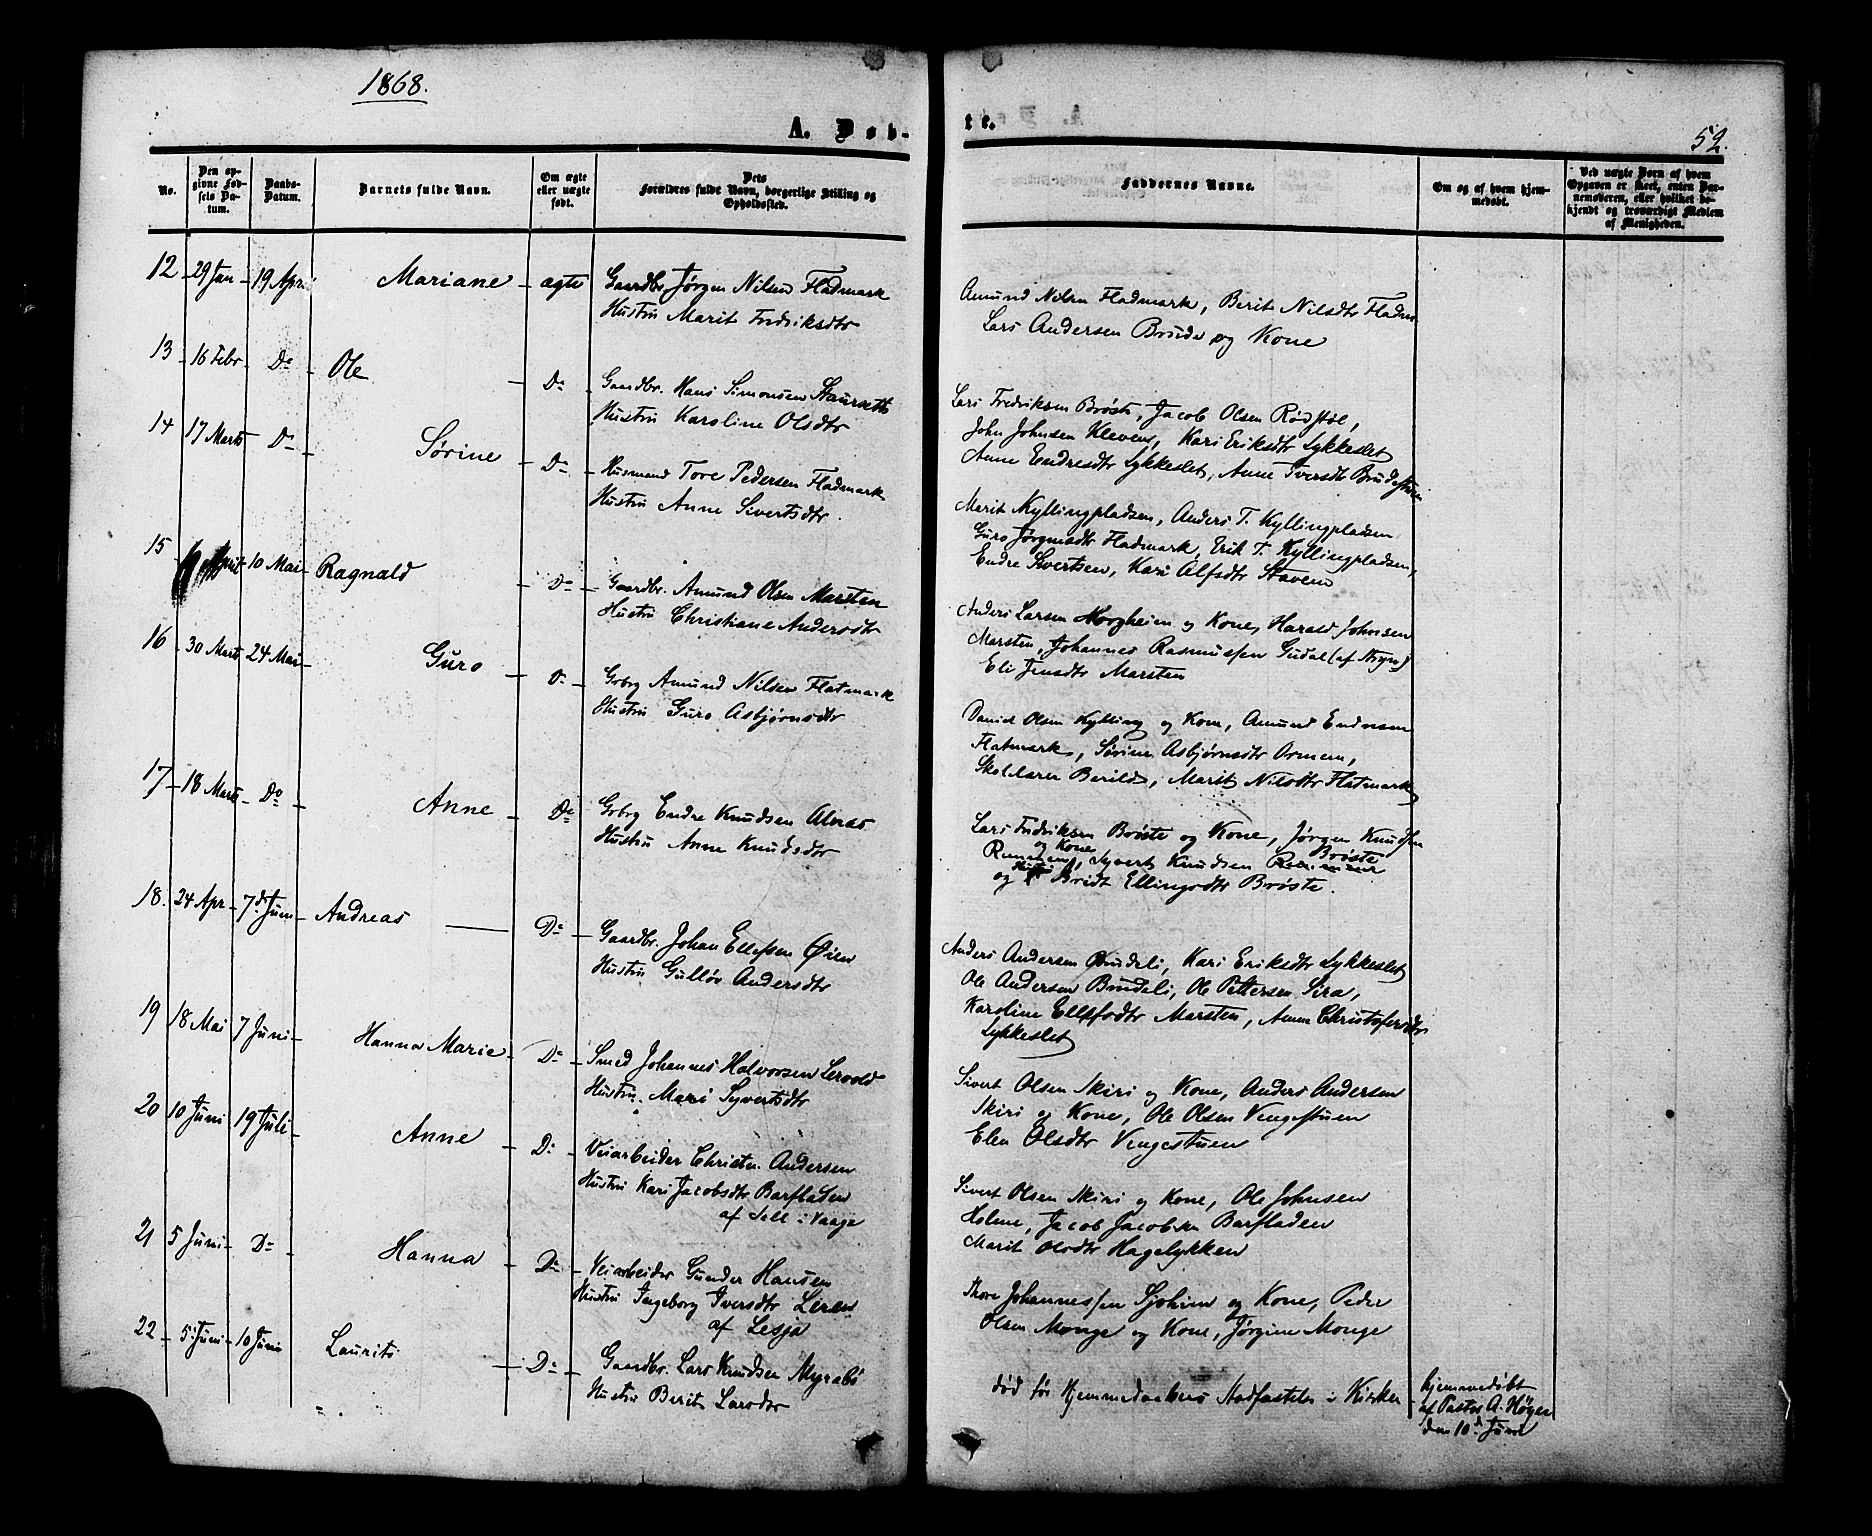 1868.
A. Døb-
te.
52.
No.
Den op-
givne Fød-
sels Da-
tum.
Daabs-
Datum.
Barnets fulde Navn.
Om ægte
eller uægte
født.
Dets
Forældres fulde Navn, borgerlige Stilling og
Opholdssted.
Faddernes Navne.
Om og af hvem hjem-
medøbt.
Ved uægte Børn af hvem
Opgaven er skeet, enten Bar-
nemoderen, eller hvilket be-
kjendt og troværdigt Medlem
af Menigheden.
12 29 Jan 19 April Mariane ægte Gaardbr. Jørgen Nilsen Fladmark
Hustru Marit Fredriksdtr
Amund Nilsen Fladmark, Berit Nilsdtr Fladm.
Lars Andersen Brude og Kone
13 16 Febr Do Ole Do Gaardbr. Hans Simonsen Staurseth
Hustru Karoline Olsdtr
Lars Fredriksen Brøste, Jacob Olsen Rødstøl,
John Johnsen Kleven, Kari Eriksdtr Lykkeslet
Anne Endresdtr Lykkeslet, Anne Iversdtr Brudestuen
14 17 Marts Do Sørine Do Husmand Tore Pedersen Fladmark
Hustru Anne Sivertsdtr.
Marit Kyllingpladsen, Anders T. Kyllingpladsen
Guro Jørgensdtr Fladmark, Erik T. Kyllingpladsen,
Endre Sivertsen, Kari Alfsdtr Stavem
15 April 10 Mai Ragnald Do Gaardbr. Amund Olsen Marsten
Hustru Christiane Andersdtr
Anders Larsen Horgheim og Kone, Harald Johnsen
Marsten, Johannes Rasmussen Gudal (af Stryn)
Eli Jensdtr Marsten
16 30 Marts 24 Mai Guro Do Grbrg Amund Nilsen Flatmark
Hustru Guro Asbjørnsdtr
Daniel Olsen Kylling og Kone, Amund Endresen
Flatmark, Sørine Asbjørnsdtr Ormem,
Skolelærer Berild, Marit Nilsdtr Flatmark
17 18 Marts Do Anne Do Grbrg Endre Knudsen Alnæs
Hustru Anne Knudsdtr
Lars Fredriksen Brøste og Kone, Jørgen Knudsen
og Kone Brøste
Syvert Knudsen
og Bridt Ellingsdtr Brøste.
18. 24 Apr 7de Juni Andreas Do Gaardbr. Johan Ellefsen Øien
Hustru Gulløv Andersdtr
Anders Andersen Brudeli, Kari Eriksdtr Lykkeslet
Ole Andersen Brudeli, Ole Pettersen Sira,
Karoline Ellefsdtr Marsten, Anne Christofersdtr
Lykkeslet
19 18 Mai 7 Juni Hanna Marie Do Smed Johannes Halvorsen Lervold
Hustru Mari Syvertsdtr
Sivert Olsen Skiri og Kone, Anders Andersen
Skiri og Kone, Ole Olsen Vengestuen
Elen Olsdtr Vengestuen
20 10 Juni 19 Juli Anne Do Veiarbeider Christen Andersen
Hustru Kari Jacobsdtr Barfladen
af Sell i Vaage
Sivert Olsen Skiri og Kone, Ole Johnsen
Holme, Jacob Jacobsen Barfladen
Marit Olsdtr Hagelykken
21 5 Juni Do Hanna Do Veiarbeider Gunder Hansen
Hustru Ingeborg Iversdtr Leren
af Lesja
Thore Johannessen Sjohim og Kone, Peder
Olsen Monge og Kone, Jørgine Monge
22 5 Juni 10 Juni Laurits Do Gaardbr. Lars Knudsen Myrabø
Hustru Berit Larsdtr
død før Hjemmedaabens Stadfæstelse i Kirken
hjemmedøbt
af Pastor A. Høyer
den 10de Juni